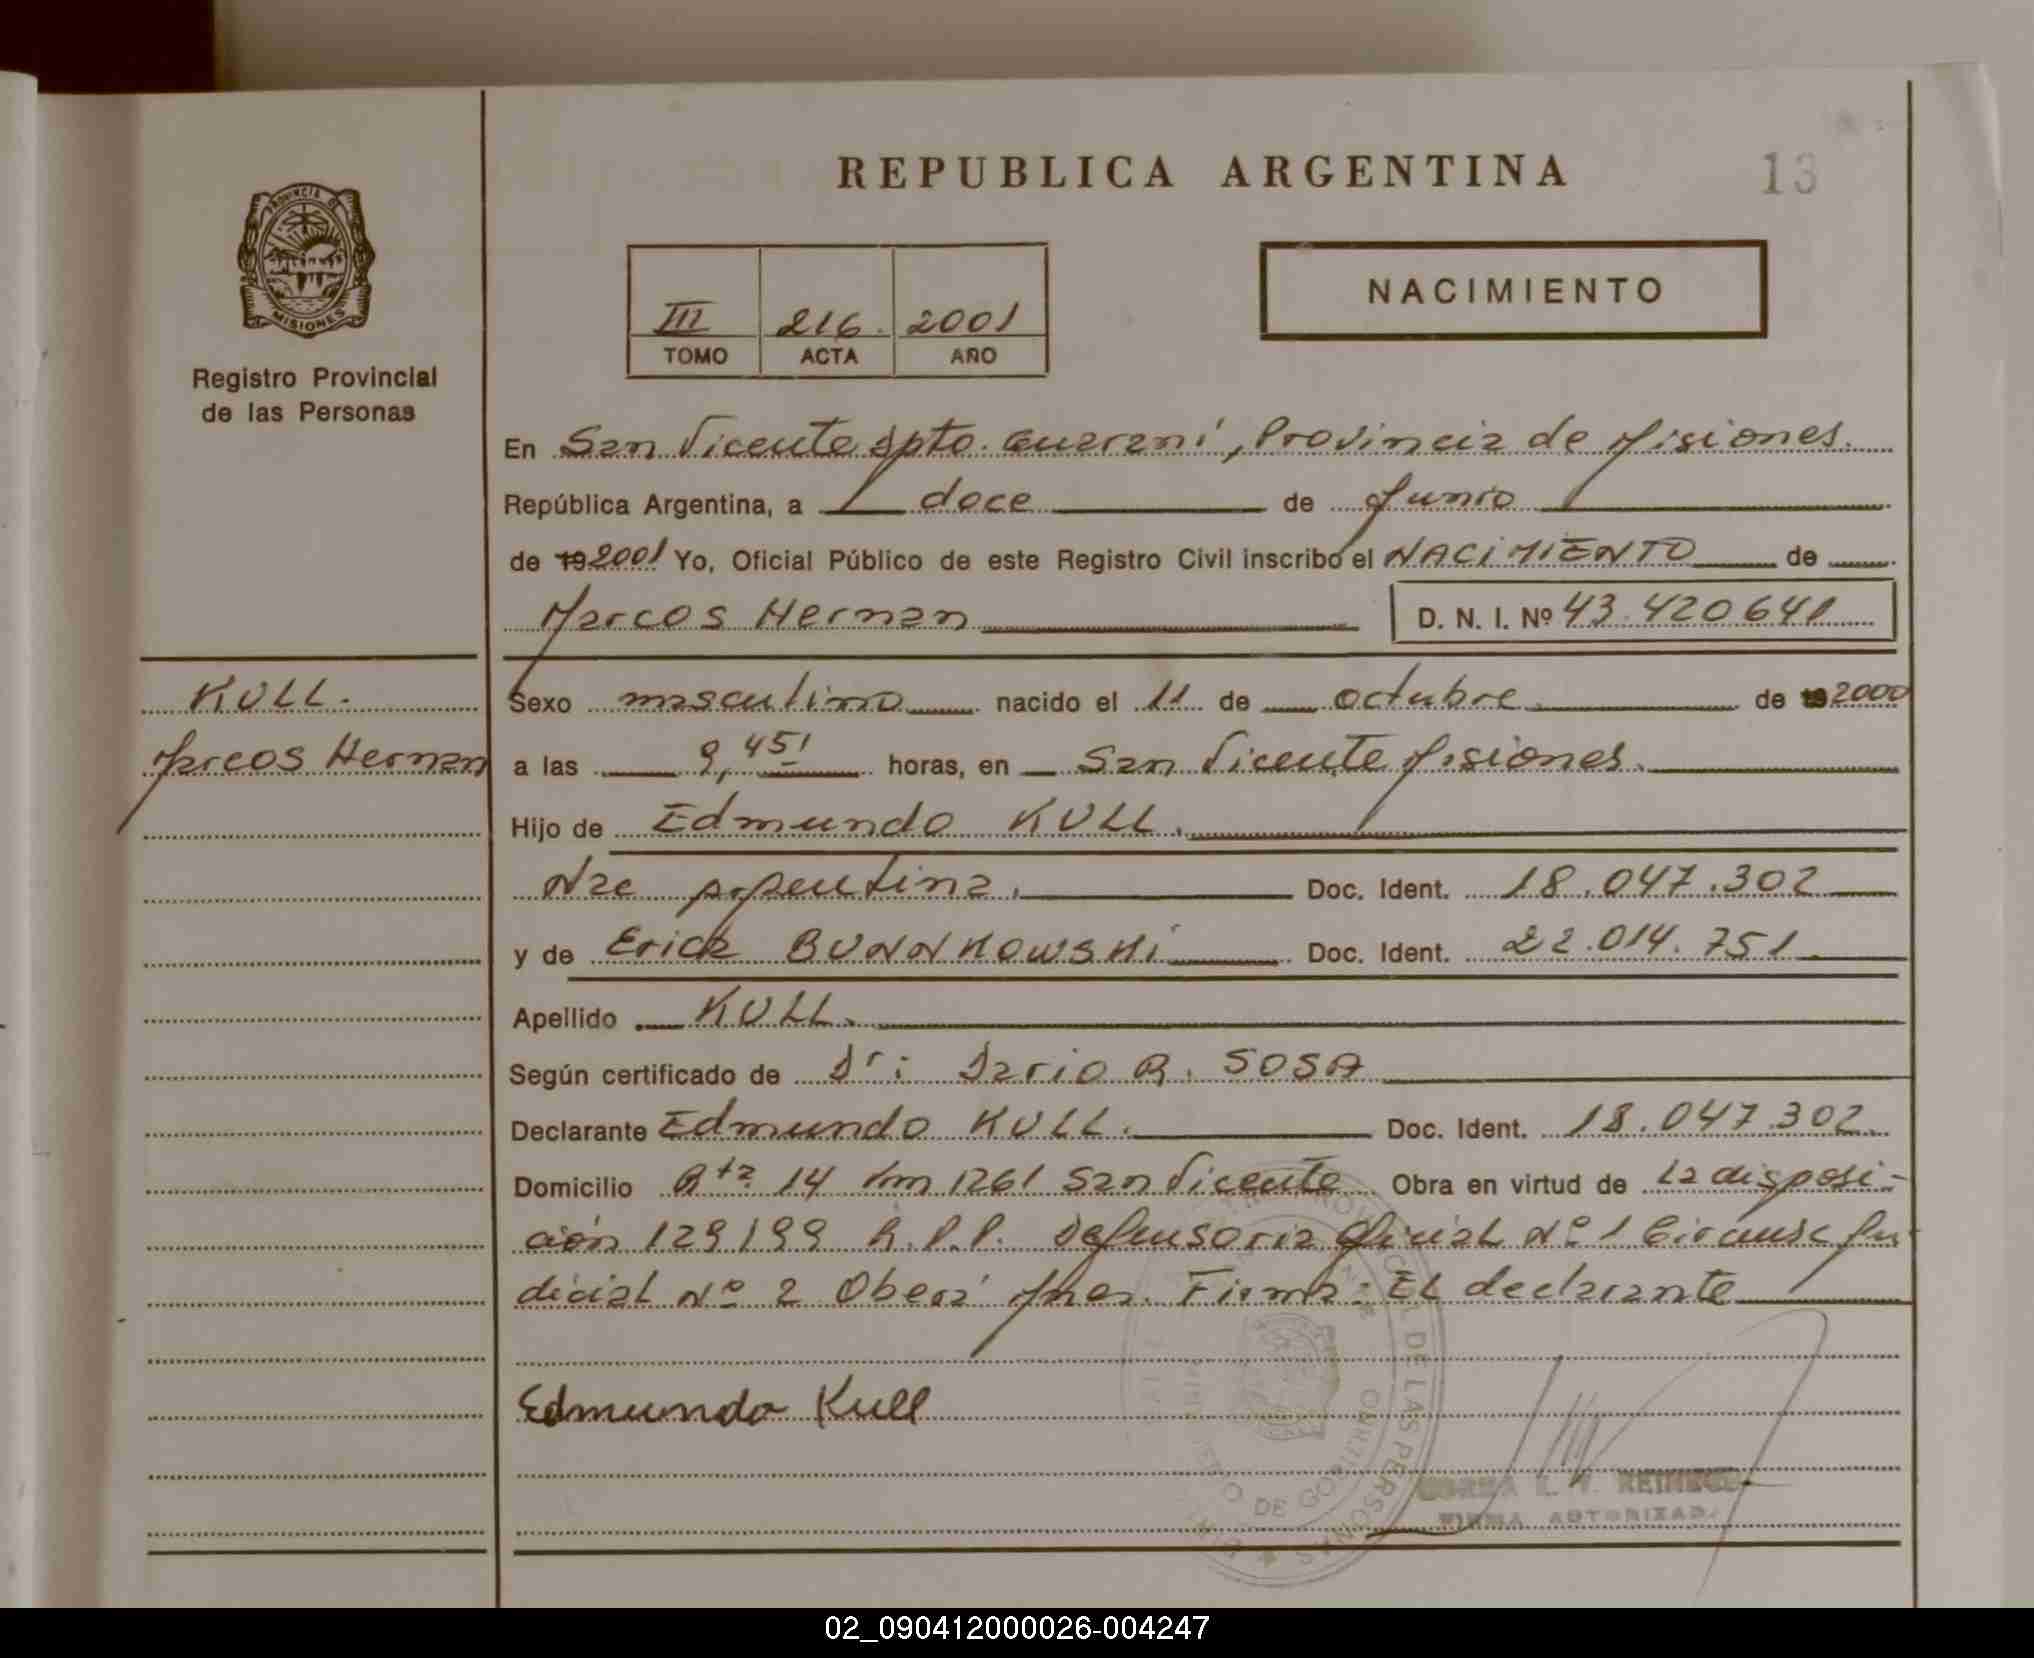 REPUBLICA ARGENTINA
13
PROVINCIA DE
MISIONES
Registro Provincial
de las Personas
III 216. 2001
TOMO ACTA AÑO
NACIMIENTO
En San Vicente Dpto. Guaraní, Provincia de Misiones.
República Argentina, a doce de Junio
de 19 2001 Yo, Oficial Público de este Registro Civil inscribo el NACIMIENTO de
Marcos Hernan D. N. I. Nº 43.420641
KULL.
Marcos Hernan
Sexo masculino nacido el 11 de octubre de 19 2000
a las 9,45' horas, en San Vicente Misiones.
Hijo de Edmundo KULL.
Nac Argentina. Doc. Ident. 18.047.302
y de Erica BUNNKOWSKI Doc. Ident. 22.014.751
Apellido KULL.
Según certificado de Dr: Dario R. SOSA
Declarante Edmundo KULL. Doc. Ident. 18.047.302.
Domicilio Rta 14 Km 1261 San Vicente Obra en virtud de la disposi-
ción 129/99 R.P.P. Defensoria Oficial Nº 1 Circunsc Ju-
dicial Nº 2 Oberá Mnes. Firma: El declarante
Edmundo Kull
DE LAS PERSONAS
DE GOBIERNO
FIRMA AUTORIZAD
02_090412000026-004247